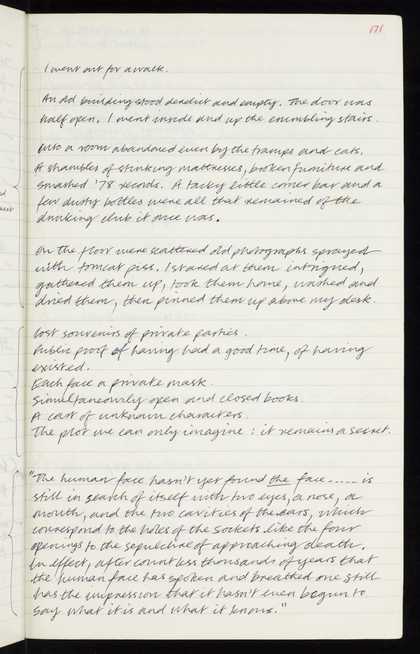 171
I went out for a walk.
An old building stood derelict and empty. The door was
half open. I went inside and up the crumbling stairs.
Into a room abandoned even by the tramps and cats.
A shambles of stinking mattresses, broken furniture and
smashed '78 records. A tacky little corner bar and a
few dusty bottles were all that remained of the
drinking club it once was.
On the floor were scattered old photographs sprayed
with tomcat piss. I stared at them intrigued,
gathered them up, took them home, washed and
dried them, then pinned them up above my desk.
Lost souvenirs of private parties.
Public proof of having had a good time, of having
existed.
Each face a private mask.
Simultaneously open and closed books.
A cast of unknown characters.
The plot we can only imagine : it remains a secret.
"The human face hasn't yet found the face ..... is
still in search of itself with two eyes, a nose, a
mouth, and the two cavities of the ears, which
correspond to the holes of the sockets like the four
openings to the sepulchre of approaching death.
In effect, after countless thousands of years that
the human face has spoken and breathed one still
has the impression that it hasn't even begun to
say what it is and what it knows."